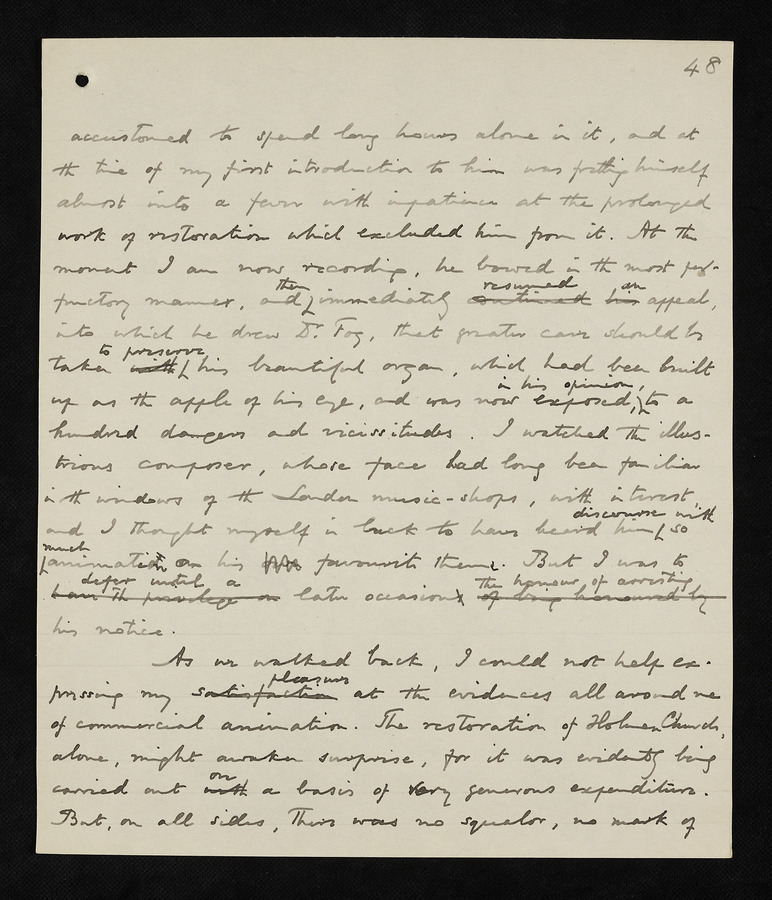 48
accustomed to spend long hours alone in it, and at
the time of my first introduction to him was fretting himself
almost into a fever with impatience at the prolonged
work of restoration which excluded him from it. At the
moment I am now recording, he bowed in the most per-
then resumed an
functory manner, and immediately continued his appeal,
into which he drew Dr. Fog, that greater care should be
to preserve
taken with his beautiful organ, which had been built
in his opinion,
up as the apple of his eye, and was now exposed, to a
hundred dangers and vicissitudes. I watched the illus-
trious composer, whose face had long been familiar
in the windows of the London music-shops, with interest
discourse with
and I thought myself in luck to have heard him so
much
animation on his favourite theme. But I was to
defer until a the honour of arresting
have the privilege on later occasion of being honoured by
his notice.
As we walked back, I could not help ex-
pleasure
pressing my satisfaction at the evidences all around me
of commercial animation. The restoration of Holmen Church,
alone, might awaken surprise, for it was evidently being
on
carried out with a basis of very generous expenditure.
But, on all sides, there was no squalor, no mark of